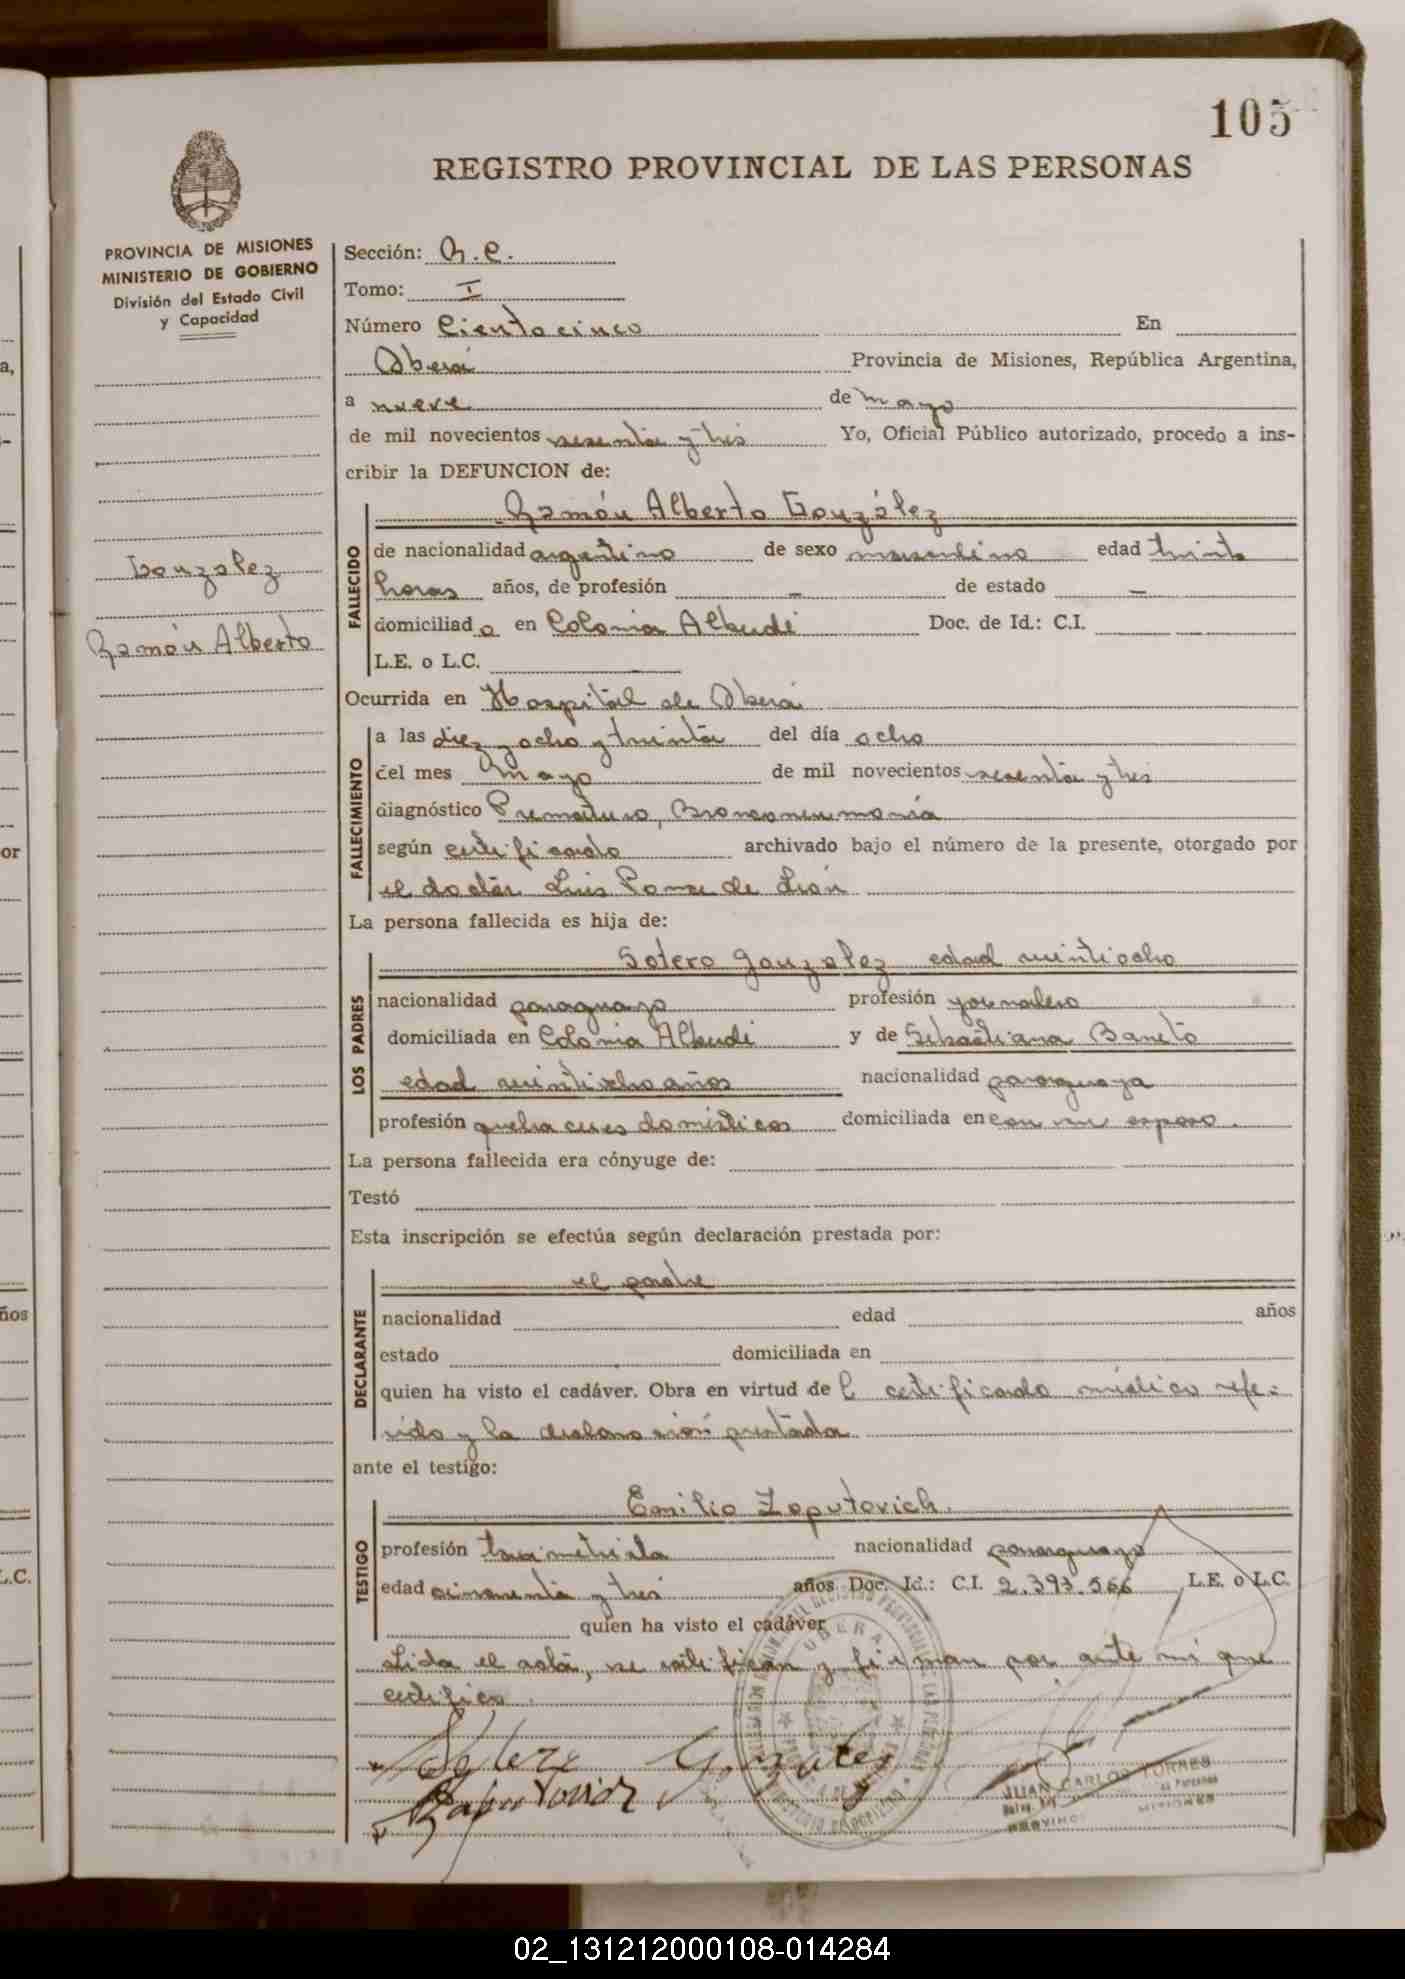 105
REGISTRO PROVINCIAL DE LAS PERSONAS
PROVINCIA DE MISIONES
MINISTERIO DE GOBIERNO
División del Estado Civil
y Capacidad
Gonzalez
Ramón Alberto
Sección: R.C.
Tomo: I
Número Ciento cinco En
Oberá Provincia de Misiones, República Argentina,
a nueve de mayo
de mil novecientos sesenta y tres Yo, Oficial Público autorizado, procedo a ins-
cribir la DEFUNCION de:
Ramón Alberto González
FALLECIDO
de nacionalidad argentino de sexo masculino edad treinta
horas años, de profesión - de estado -
domiciliado en Colonia Alberdi Doc. de Id.: C.I.
L.E. o L.C.
Ocurrida en Hospital de Oberá
FALLECIMIENTO
a las diez y ocho y treinta del día ocho
del mes Mayo de mil novecientos sesenta y tres
diagnóstico Prematuro, Bronconeumonía
según certificado archivado bajo el número de la presente, otorgado por
el doctor Luis Ponce de León
La persona fallecida es hija de:
LOS PADRES
Sotero Gonzalez edad veintiocho
nacionalidad paraguayo profesión jornalero
domiciliada en Colonia Alberdi y de Sebastiana
edad veintiocho años nacionalidad paraguaya
profesión domésticos domiciliada en con su esposo.
La persona fallecida era cónyuge de:
Testó
Esta inscripción se efectúa según declaración prestada por:
DECLARANTE
el padre
nacionalidad edad años
estado domiciliada en
quien ha visto el cadáver. Obra en virtud del certificado médico refe-
rido y la declaración prestada
ante el testigo:
TESTIGO
Emilio Zaputovich.
profesión taximetrista nacionalidad paraguayo
edad cincuenta y tres años Doc. Id.: C.I. 2.393.566 L.E. o L.C.
quien ha visto el cadáver
Lida el acta, se ratifican y firman por ante mi que
certifico.
Sotero Gonzalez
Zaputovich
OBERA
JUAN CARLOS TORRES
02_131212000108-014284